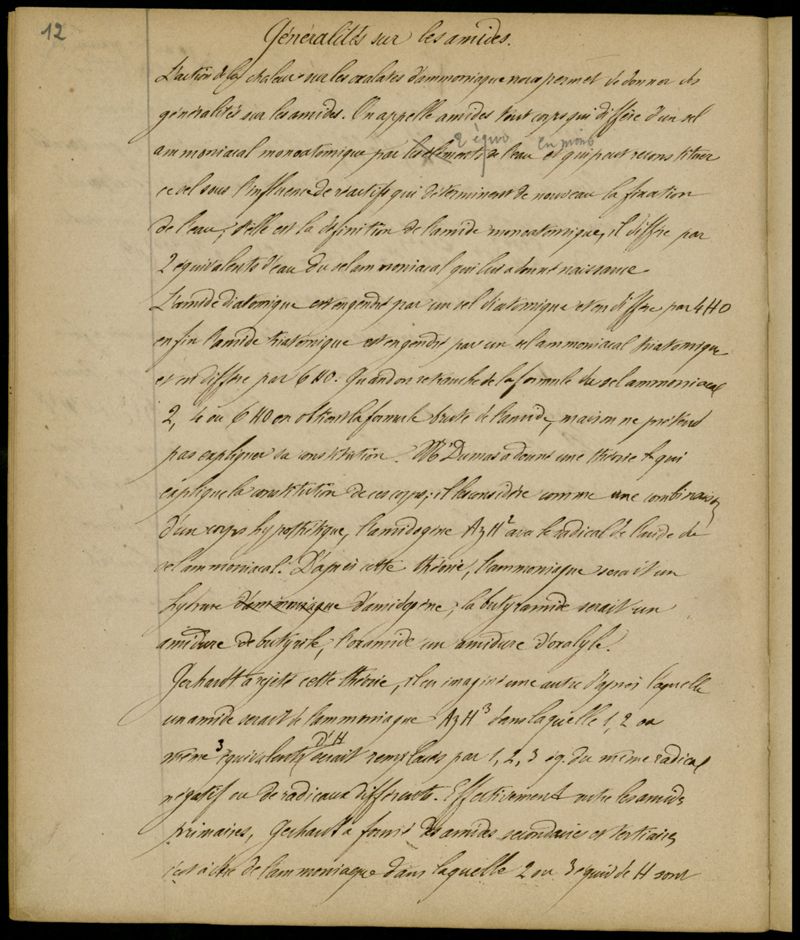 12
Généralités sur les amides.
L'action de la chaleur sur les oxalates d'ammoniaque nous permet de donner des
généralités sur les amides. On appelle amides tout corps qui diffère d'un sel
2 équiv en moins
ammoniacal monoatomique par les éléments de l'eau et qui peut reconstituer
ce sel sous l'influence de réactifs qui déterminent de nouveau la fixation
de l'eau; telle est la définition de l'amide monoatomique, il diffère par
2 équivalents d'eau du sel ammoniacal qui lui a donné naissance
L'amide diatomique est engendré par un sel diatomique et en diffère par 4 HO
enfin l'amide triatomique est engendré par un sel ammoniacal triatomique
et en diffère par 6 HO. Quand on retranche de la formule du sel ammoniacal
2, 4 ou 6 HO on obtient la formule brute de l'amide, mais on ne prétend
pas expliquer sa constitution. Mr Dumas a donné une théorie qui
explique la constitution de ces corps; il les considère comme une combinaison
d'un corps hypothétique, l'amidogène AzH2 avec le radical de l'acide du
sel ammoniacal. D'après cette théorie, l'ammoniaque serait un
hydrure d'ammoniaque d'amidogène; la butyramide serait un
amidure de butyrile, l'oxamide un amidure d'oxalyle.
Gerhardt a rejeté cette théorie, il en imagine une autre d'après laquelle
un amide serait de l'ammoniaque AzH3 dans laquelle 1, 2 ou
même 3 équivalents d'H serait remplacés par 1, 2, 3 éq. du même radical
négatif ou de radicaux différents. Effectivement outre les amides
primaires, Gerhardt a formé des amides secondaires et tertiaires
c'est à dire de l'ammoniaque dans laquelle 2 ou 3 équiv de H sont